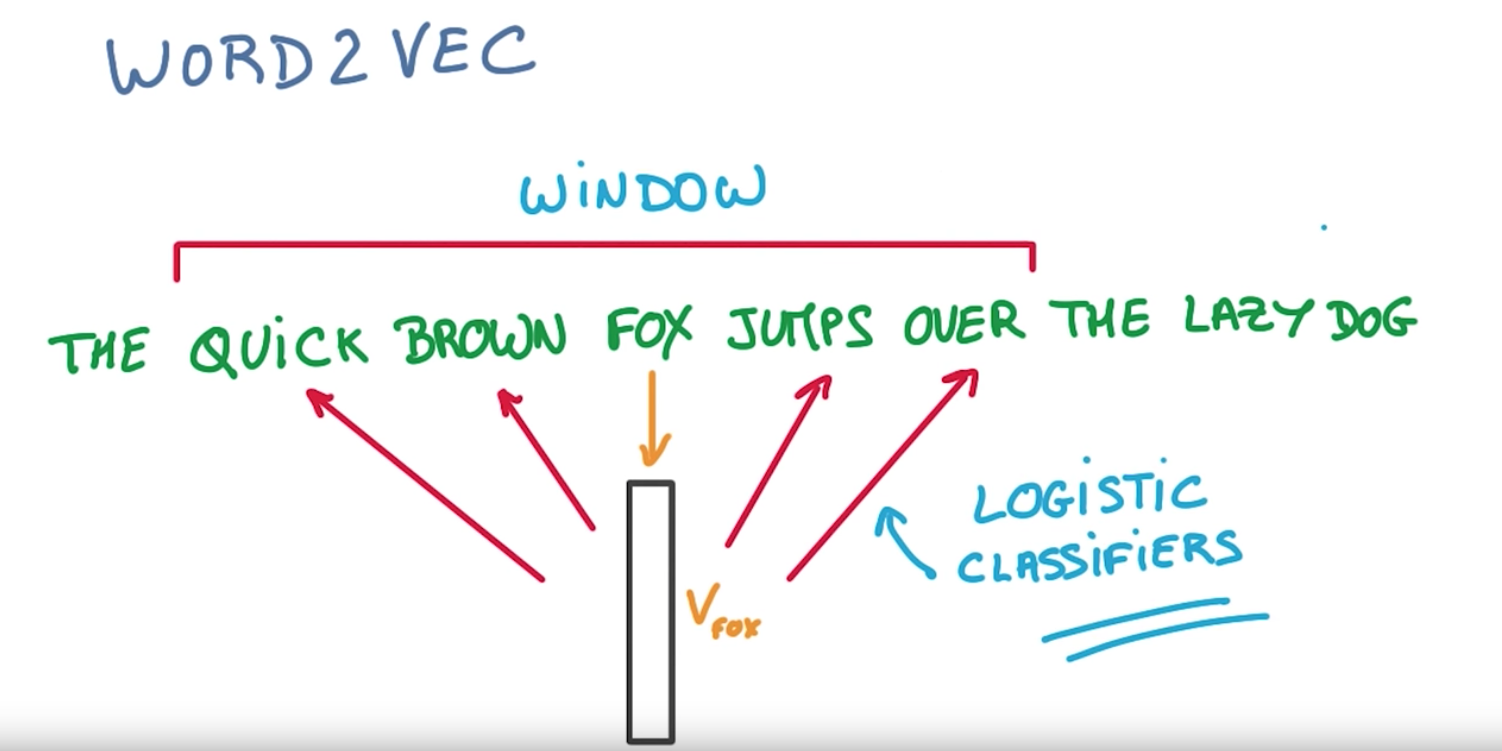 WORD2VEC
WINDOW
THE QUICK BROWN FOX JUMPS OVER THE LAZY DOG
LOGISTIC
CLASSIFIERS
VFOX